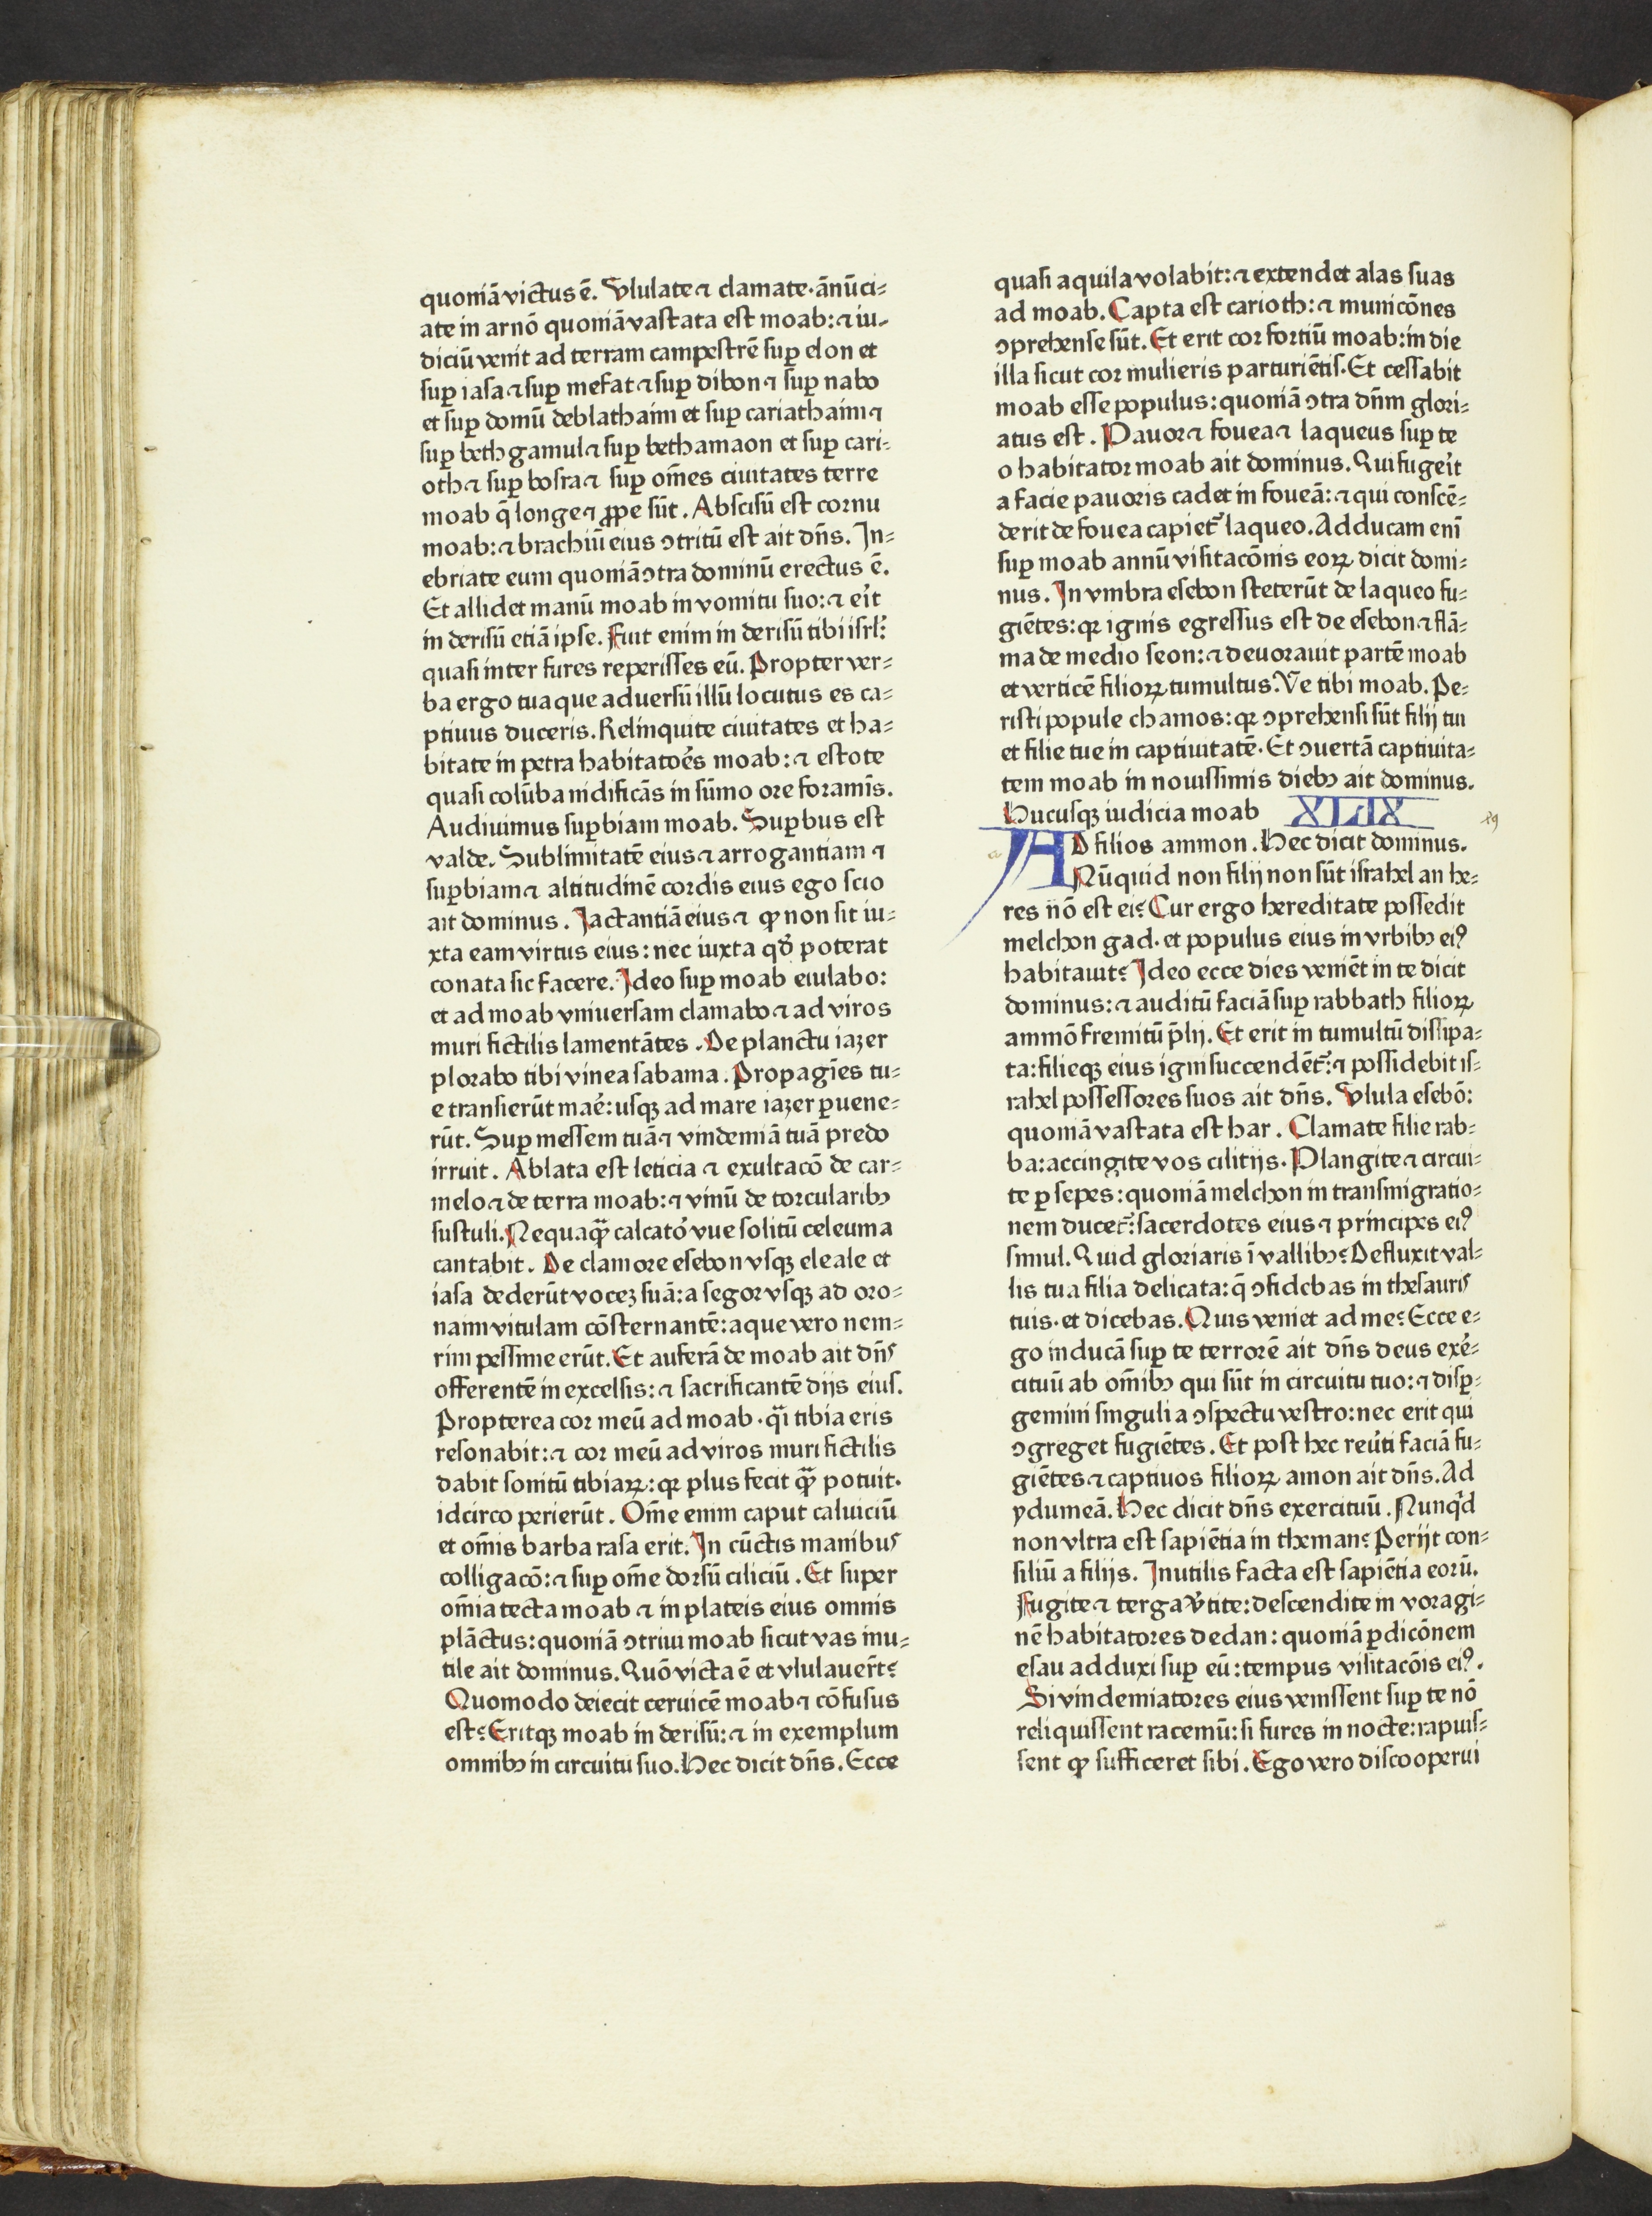 quoniā victus ē. Ululate ⁊ clamate· ānūci⸗
ate in arnō quoniā vastata est moab: ⁊ iu⸗
diciū venit ad terram campestrē suꝑ elon et
suꝑ iasa ⁊ suꝑ mefat ⁊ suꝑ dibon ⁊ suꝑ nabo
et suꝑ domū deblathaim et suꝑ cariathaim ⁊
suꝑ beth gamul ⁊ suꝑ bethamaon et suꝑ cari⸗
oth ⁊ suꝑ bosra ⁊ suꝑ om̄es ciuitates terre
moab q̄ longe ⁊ ꝓpe sūt. Abscisū est cornu
moab: ⁊ brachiū eius ↄtritū est ait dn̄s. In⸗
ebriate eum quoniā ↄtra dominū erectus ē.
Et allidet manū moab in vomitu suo: ⁊ er̄it
in derisū etiā ipse. Fuit enim in derisū tibi isrl̄:
quasi inter fures reperisses eū. Propter ver⸗
ba ergo tua que aduersū illū locutus es ca⸗
ptiuus duceris. Relinquite ciuitates et ha⸗
bitate in petra habitatōes moab: ⁊ estote
quasi colūba nidificās in sūmo ore foramīs.
Audiuimus suꝑbiam moab. Suꝑbus est
valde. Sublimitatē eius ⁊ arrogantiam ⁊
suꝑbiam ⁊ altitudinē cordis eius ego scio
ait dominus. Iactantiā eius ⁊ ꝙ non sit iu⸗
xta eam virtus eius: nec iuxta qd̄ poterat
conata sic facere. Ideo suꝑ moab eiulabo:
et ad moab vniuersam clamabo ⁊ ad viros
muri fictilis lamentātes. De planctu iazer
plorabo tibi vinea sabama. Propagīes tu⸗
e transierūt mar̄e: usqꝫ ad mare iazer ꝑuene⸗
rūt. Suꝑ messem tuā ⁊ vindemiā tuā predo
irruit. Ablata est leticia ⁊ exultacō de car⸗
melo ⁊ de terra moab: ⁊ vinū de torcularibꝫ
sustuli. Nequaqᷓꝫ calcator̄ vue solitū celeuma
cantabit. De clamore esebon vsqꝫ eleale et
iasa dederūt voceꝫ suā: a segor vsqꝫ ad oro⸗
naim vitulam cōsternantē: aque vero nem⸗
rim pessime erūt. Et auferā de moab ait dn̄s
offerentē in excelsis: ⁊ sacrificantē dijs eius.
Propterea cor meū ad moab· qᷓi tibia eris
resonabit: ⁊ cor meū ad viros muri fictilis
dabit sonitū tibiaꝝ: qꝛ plus fecit qᷓꝫ potuit.
idcirco perierūt. Om̄e enim caput caluiciū
et om̄is barba rasa erit. In cūctis manibus
colligacō: ⁊ suꝑ om̄e dorsū ciliciū. Et super
om̄ia tecta moab ⁊ in plateis eius omnis
plāctus: quoniā ↄtriui moab sicut vas inu⸗
tile ait dominus. Quō victa ē et vlulauer̄t?
Quomodo deiecit ceruicē moab ⁊ cōfusus
est? Eritqꝫ moab in derisū: ⁊ in exemplum
omnibꝫ in circuitu suo. Hec dicit dn̄s. Ecce
quasi aquila volabit: ⁊ extendet alas suas
ad moab. Capta est carioth: ⁊ municōnes
ↄprehense sūt. Et erit cor fortiū moab: in die
illa sicut cor mulieris parturiētis. Et cessabit
moab esse populus: quoniā ↄtra dn̄m glori⸗
atus est. Pauor ⁊ fouea ⁊ laqueus suꝑ te
o habitator moab ait dominus. Qui fuger̄it
a facie pauoris cadet in foueā: ⁊ qui conscē⸗
derit de fouea capiet᷑ laqueo. Adducam enī
suꝑ moab annū visitacōnis eoꝝ dicit domi⸗
nus. In vmbra esebon steterūt de laqueo fu⸗
giētes: qꝛ ignis egressus est de esebon ⁊ flā⸗
ma de medio seon: ⁊ deuorauit partē moab
et verticē filioꝝ tumultus. Ve tibi moab. Pe⸗
risti popule chamos: qꝛ ↄprehensi sūt filij tui
et filie tue in captiuitatē. Et ↄuertā captiuita⸗
tem moab in nouissimis diebꝫ ait dominus.
Hucusqꝫ iudicia moab XLIX
AD filios ammon. Hec dicit dominus.
Nūquid non filij non sūt israhel an he⸗
res nō est ei? Cur ergo hereditate possedit
melchon gad· et populus eius in vrbibꝫ eiꝰ
habitauit? Ideo ecce dies veniēt in te dicit
dominus: ⁊ auditū faciā suꝑ rabbath filioꝝ
ammō fremitū p̄lij. Et erit in tumultū dissipa⸗
ta: filieqꝫ eius igni succendēt᷑: ⁊ possidebit is⸗
rahel possessores suos ait dn̄s. Ulula esebō:
quoniā vastata est har. Clamate filie rab⸗
ba: accingite vos cilitijs. Plangite ⁊ circui⸗
te ꝑ sepes: quoniā melchon in transmigratio⸗
nem ducet᷑: sacerdotes eius ⁊ principes eiꝰ
simul. Quid gloriaris ī vallibꝫ? Defluxit val⸗
lis tua filia delicata: q̄ ↄfidebas in thesauris
tuis· et dicebas. Quis veniet ad me? Ecce e⸗
go inducā suꝑ te terrorē ait dn̄s deus exer̄⸗
cituū ab om̄ibꝫ qui sūt in circuitu tuo: ⁊ disꝑ⸗
gemini singuli a ↄspectu vestro: nec erit qui
ↄgreget fugiētes. Et post hec reu̓ti faciā fu⸗
giētes ⁊ captiuos filioꝝ amon ait dn̄s. Ad
ydumeā. Hec dicit dn̄s exercituū. Nunqͥd
non vltra est sapiētia in theman? Perijt con⸗
siliū a filijs. Inutilis facta est sapiētia eorū.
Fugite ⁊ terga v̓tite: descendite in voragi⸗
nē habitatores dedan: quoniā ꝑdicōnem
esau adduxi suꝑ eū: tempus visitacōis eiꝰ.
Si vindemiatores eius venissent suꝑ te nō
reliquissent racemū: si fures in nocte: rapuis⸗
sent ꝙ sufficeret sibi. Ego vero discooperui